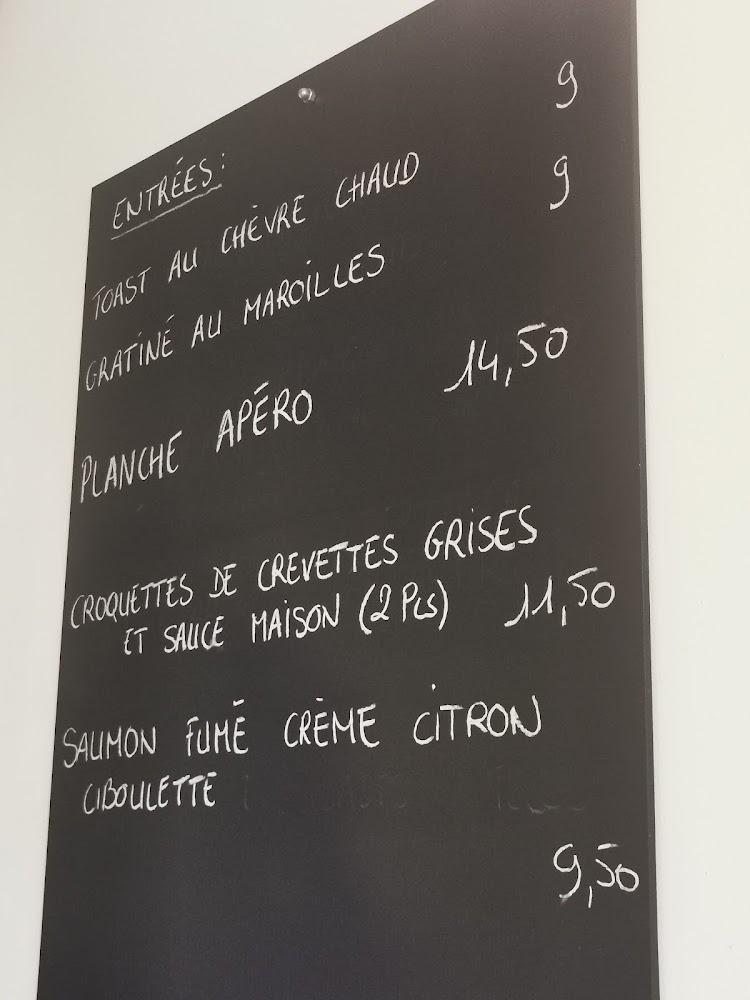 ENTRÉES:
TOAST AU CHÈVRE CHAUD 9
GRATINÉ AU MAROILLES 9
PLANCHE APÉRO 14,50
CROQUETTES DE CREVETTES GRISES
ET SAUCE MAISON (2 Pcs) 11,50
SAUMON FUMÉ CRÈME CITRON
CIBOULETTE
9,50